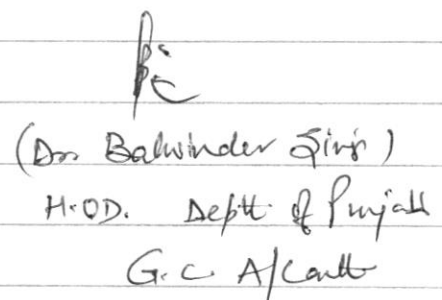 (Dr. Balwinder Singh)
H.OD. Deptt. of Punjabi
G.C. A/Cantt